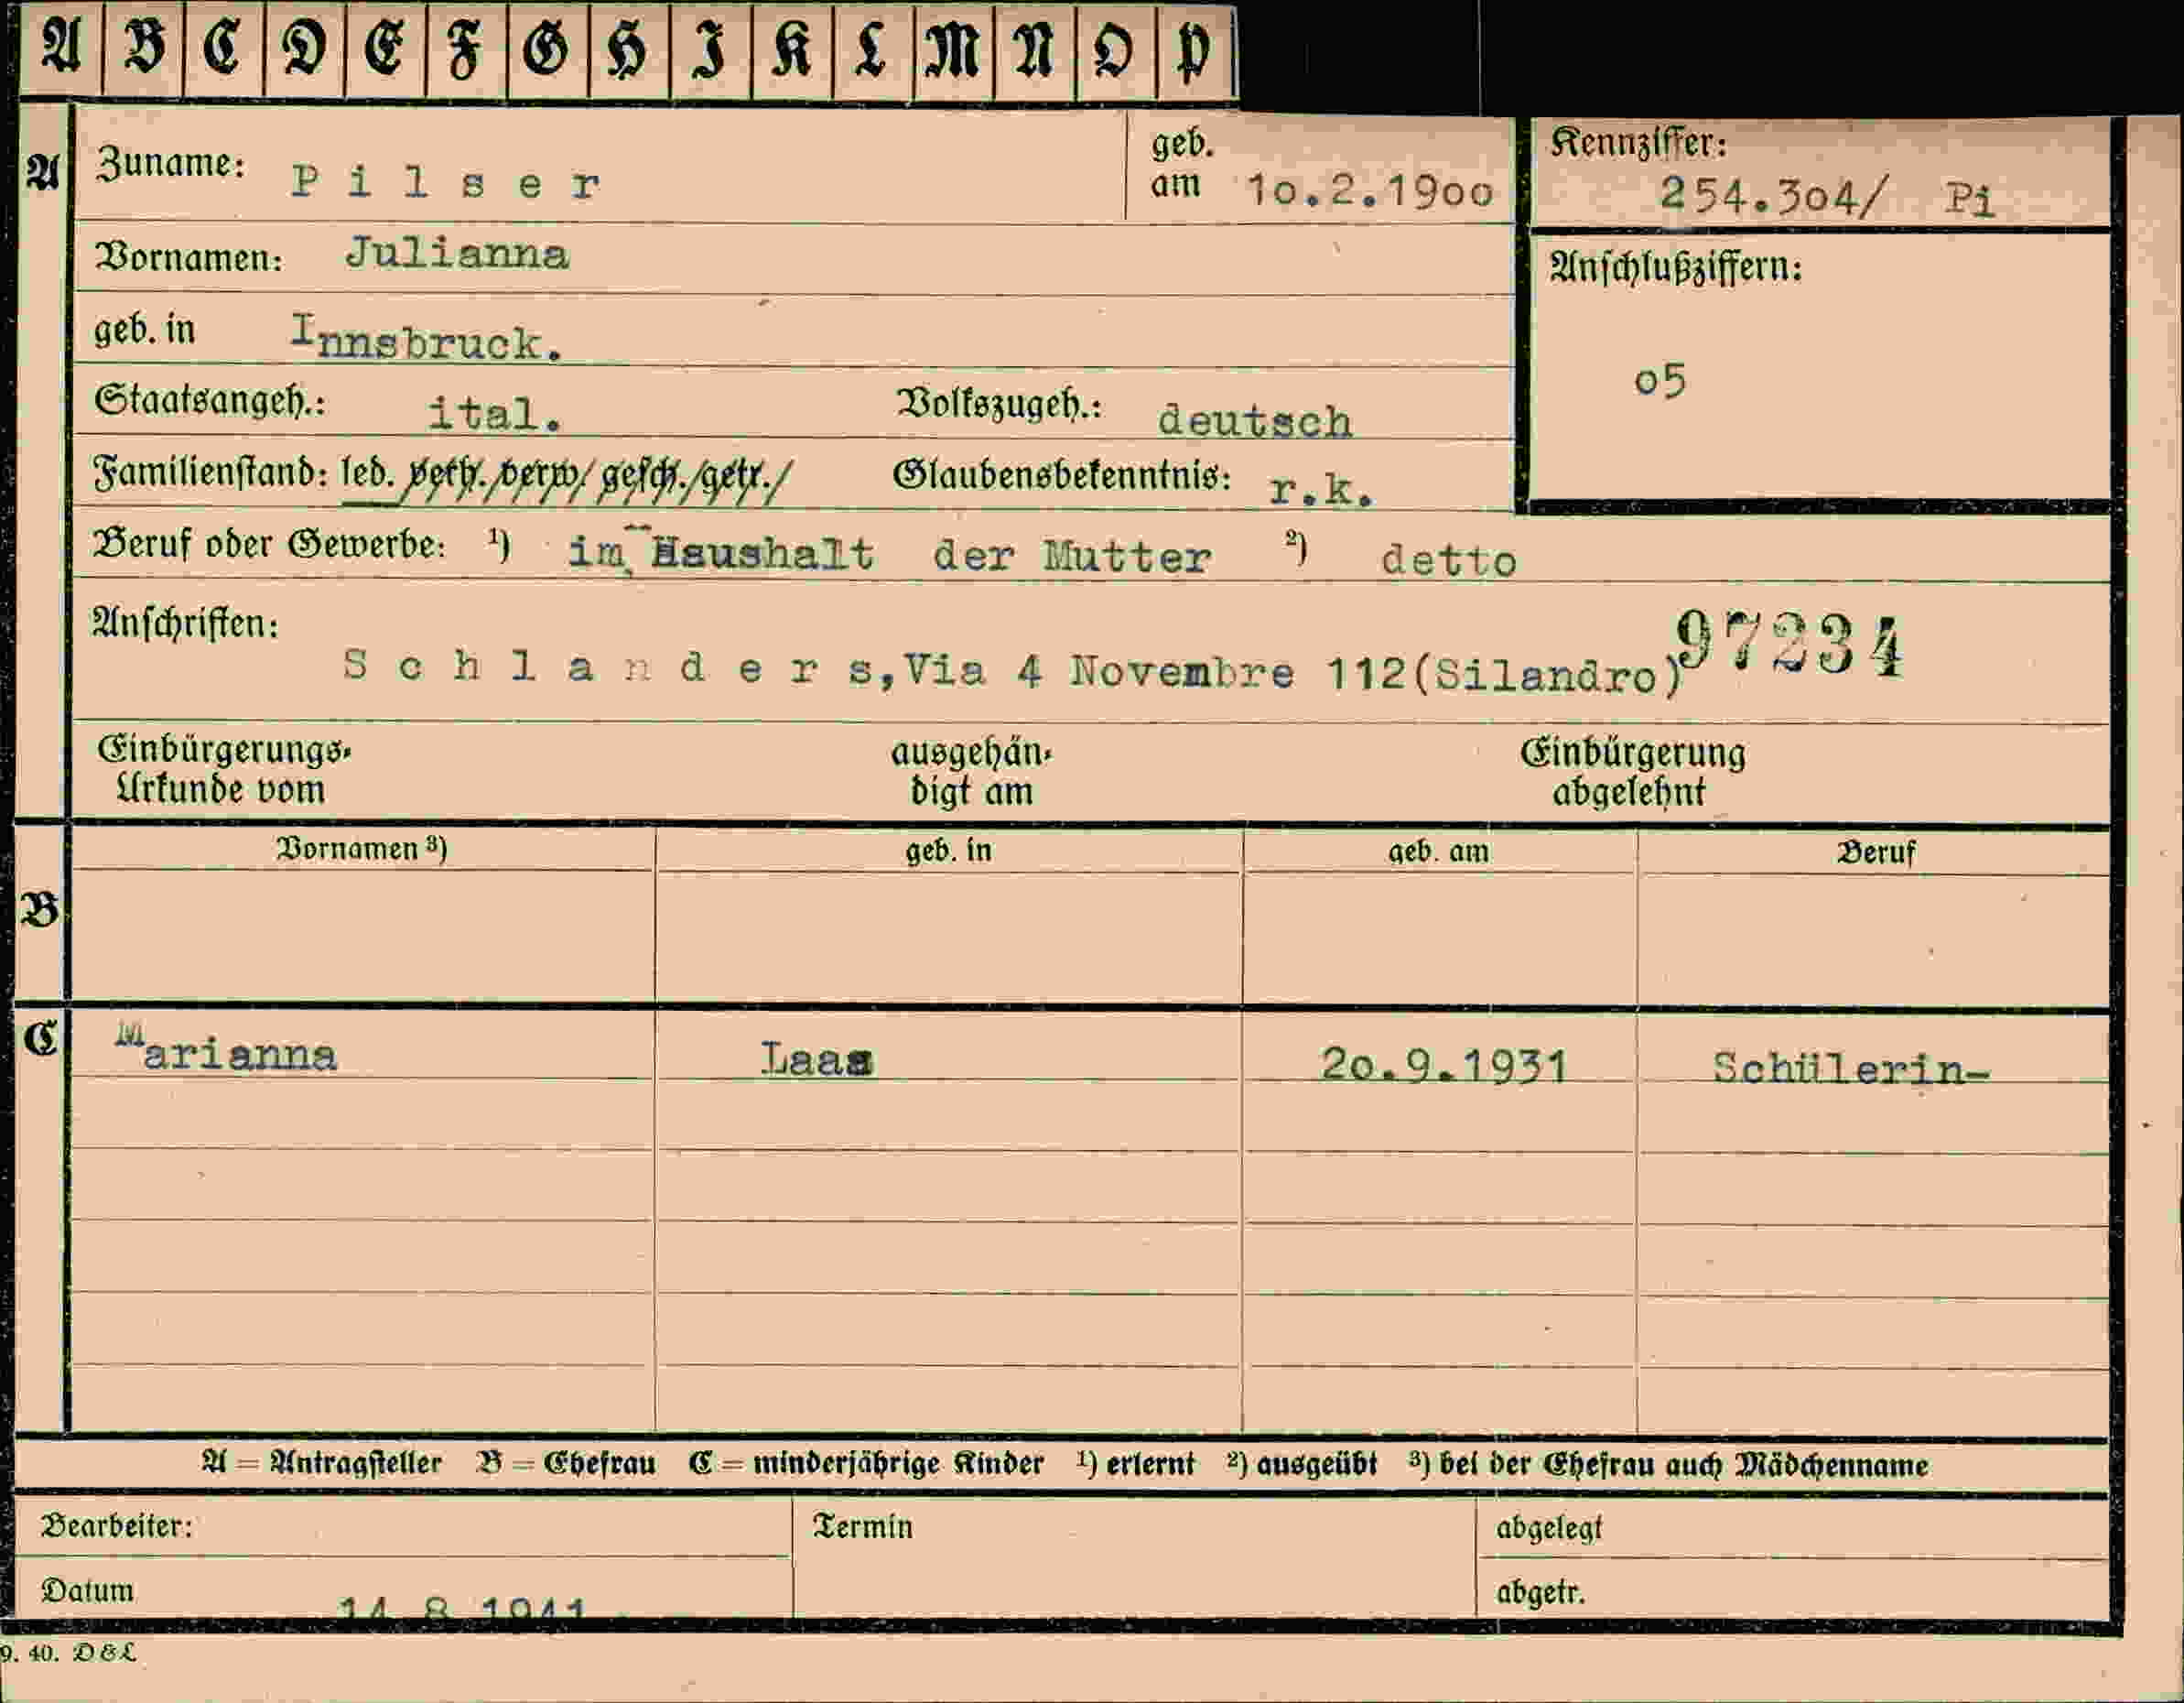 A B C D E F G H I K L M N O P
A Zuname: Pilser geb. am 10.2.1900 Kennziffer: 254.304/ Pi
Vornamen: Julianna Anschlußziffern:
geb. in Innsbruck.
05
Staatsangeh.: ital. Volkszugeh.: deutsch
Familienstand: led. verh./verw/gesch./getr./ Glaubensbekenntnis: r.k.
Beruf oder Gewerbe: 1) im Haushalt der Mutter 2) detto
Anschriften: 97234
Schlanders, Via 4 Novembre 112(Silandro)
Einbürgerungs- ausgehän- Einbürgerung
Urkunde vom digt am abgelehnt
Vornamen 3) geb. in geb. am Beruf
B
C Marianna Laas 20.9.1931 Schülerin-
A = Antragsteller B = Ehefrau C = minderjährige Kinder 1) erlernt 2) ausgeübt 3) bei der Ehefrau auch Mädchenname
Bearbeiter: Termin abgelegt
Datum 14 8 1941 abgetr.
9. 40. D&L